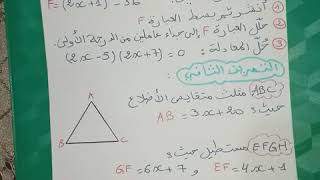 F=(2x+1)²-36
① أنشر ثم بسط العبارة F
② حلل العبارة F إلى جداء عاملين من الدرجة الأولى.
③ حل المعادلة: (2x-5)(2x+7)=0
التمرين الثاني
ABC مثلث متقايس الأضلاع
حيث: AB = 3x+20
EFGH مستطيل حيث:
GF=6x+7 و EF=4x+1
A
B
C